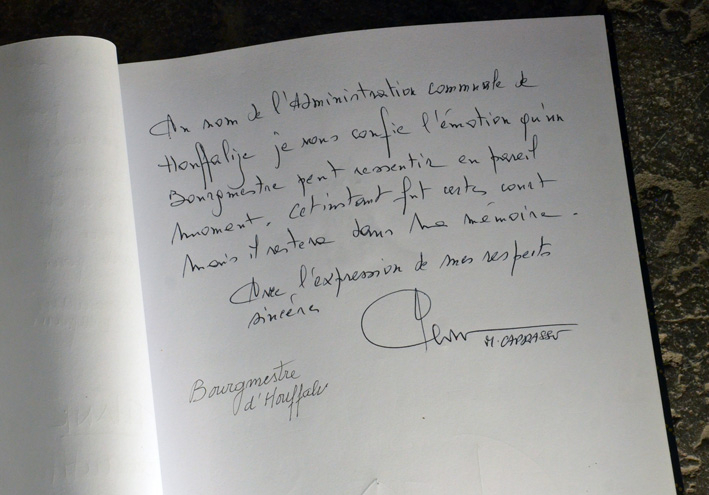 Au nom de l'Administration communale de
Houffalize je vous confie l'émotion qu'un
Bourgmestre peut ressentir en pareil
moment. Cet instant fut certes court
mais il restera dans ma mémoire.
Avec l'expression de mes respects
sincères
M. CAPRASSE
Bourgmestre
d'Houffalize